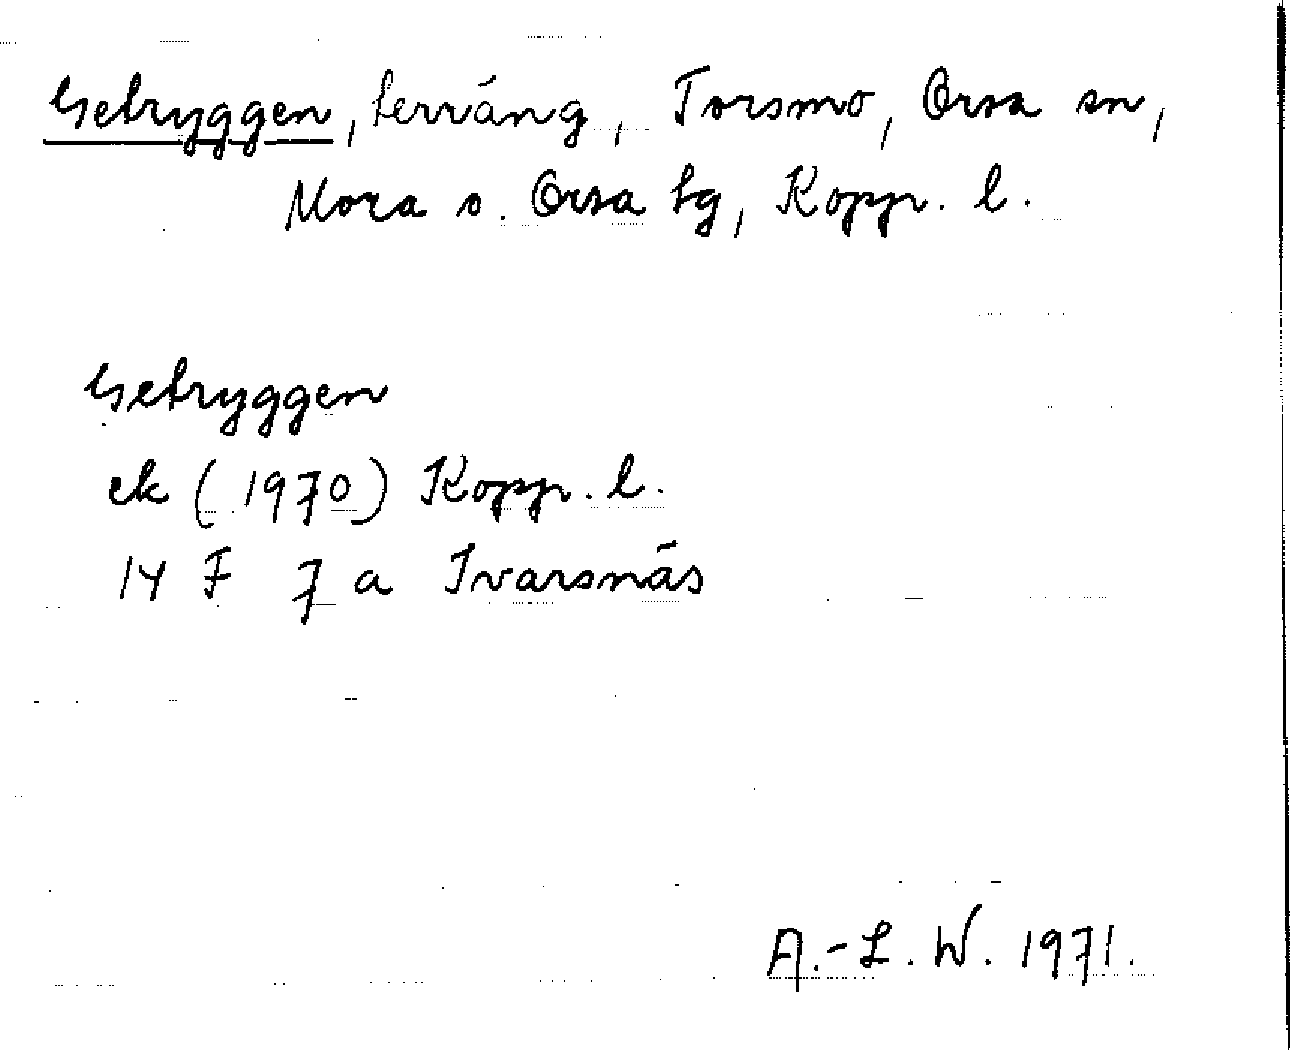 Getryggen, terräng, Torsmo, Orsa sn,
Mora o. Orsa tg, Kopp. l.
Getryggen
ek (1970) Kopp. l.
14 F 7 a Ivarsnäs
A.-L. W. 1971.